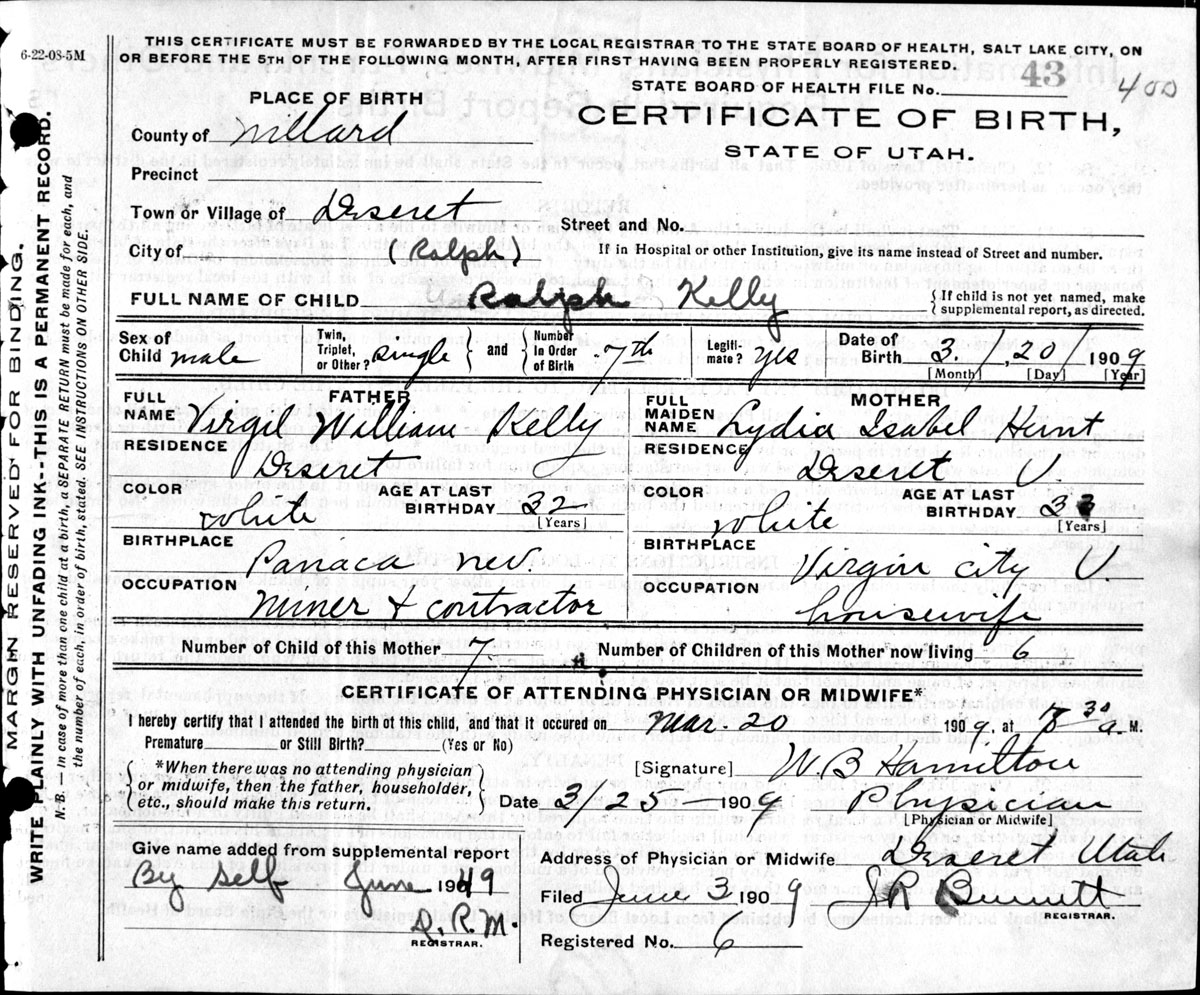 6-22-08-5M
THIS CERTIFICATE MUST BE FORWARDED BY THE LOCAL REGISTRAR TO THE STATE BOARD OF HEALTH, SALT LAKE CITY, ON
OR BEFORE THE 5TH OF THE FOLLOWING MONTH, AFTER FIRST HAVING BEEN PROPERLY REGISTERED.
STATE BOARD OF HEALTH FILE No. 43 400
PLACE OF BIRTH
CERTIFICATE OF BIRTH,
STATE OF UTAH.
County of Millard
Precinct
Town or Village of Deseret
Street and No.
City of (Ralph)
If in Hospital or other Institution, give its name instead of Street and number.
FULL NAME OF CHILD Ralph Kelly
{If child is not yet named, make supplemental report, as directed.
Sex of Child male Twin, Triplet, or Other? single } and { Number in Order of Birth 7th Legitimate? yes Date of Birth 3 / 20 / 1909
[Month] [Day] [Year]
FATHER
FULL NAME Virgil William Kelly
RESIDENCE Deseret
COLOR white AGE AT LAST BIRTHDAY 32 [Years]
BIRTHPLACE Panaca Nev.
OCCUPATION Miner + contractor
MOTHER
FULL MAIDEN NAME Lydia Isabel Hunt
RESIDENCE Deseret U.
COLOR white AGE AT LAST BIRTHDAY [Years]
BIRTHPLACE Virgin city U.
OCCUPATION housewife
Number of Child of this Mother 7 Number of Children of this Mother now living 6
CERTIFICATE OF ATTENDING PHYSICIAN OR MIDWIFE*
I hereby certify that I attended the birth of this child, and that it occured on Mar 20 1909, at 8 30 a. M.
Premature or Still Birth? (Yes or No)
{*When there was no attending physician or midwife, then the father, householder, etc., should make this return.}
[Signature] W. B Hamilton
Date 3 25 1909 Physician
[Physician or Midwife]
Give name added from supplemental report
By self June 1949
D. R. M.
REGISTRAR.
Address of Physician or Midwife Deseret Utah
Filed June 3 1909 J R Bennett
REGISTRAR.
Registered No. 6
MARGIN RESERVED FOR BINDING.
WRITE PLAINLY WITH UNFADING INK--THIS IS A PERMANENT RECORD.
N. B. — In case of more than one child at a birth, a SEPARATE RETURN must be made for each, and
the number of each, in order of birth, stated. SEE INSTRUCTIONS ON OTHER SIDE.